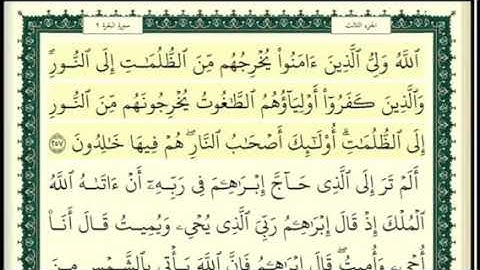 الجزء الثالث
سورة البقرة ٢
ٱللَّهُ وَلِىُّ ٱلَّذِينَ ءَامَنُوا۟ يُخْرِجُهُم مِّنَ ٱلظُّلُمَـٰتِ إِلَى ٱلنُّورِ ۖ
وَٱلَّذِينَ كَفَرُوٓا۟ أَوْلِيَآؤُهُمُ ٱلطَّـٰغُوتُ يُخْرِجُونَهُم مِّنَ ٱلنُّورِ
إِلَى ٱلظُّلُمَـٰتِ ۗ أُو۟لَـٰٓئِكَ أَصْحَـٰبُ ٱلنَّارِ ۖ هُمْ فِيهَا خَـٰلِدُونَ ٢٥٧
أَلَمْ تَرَ إِلَى ٱلَّذِى حَآجَّ إِبْرَٰهِـۧمَ فِى رَبِّهِۦٓ أَنْ ءَاتَىٰهُ ٱللَّهُ
ٱلْمُلْكَ إِذْ قَالَ إِبْرَٰهِـۧمُ رَبِّىَ ٱلَّذِى يُحْىِۦ وَيُمِيتُ قَالَ أَنَا۠
أُحْىِۦ وَأُمِيتُ ۖ قَالَ إِبْرَٰهِـۧمُ فَإِنَّ ٱللَّهَ يَأْتِى بِٱلشَّمْسِ مِنَ